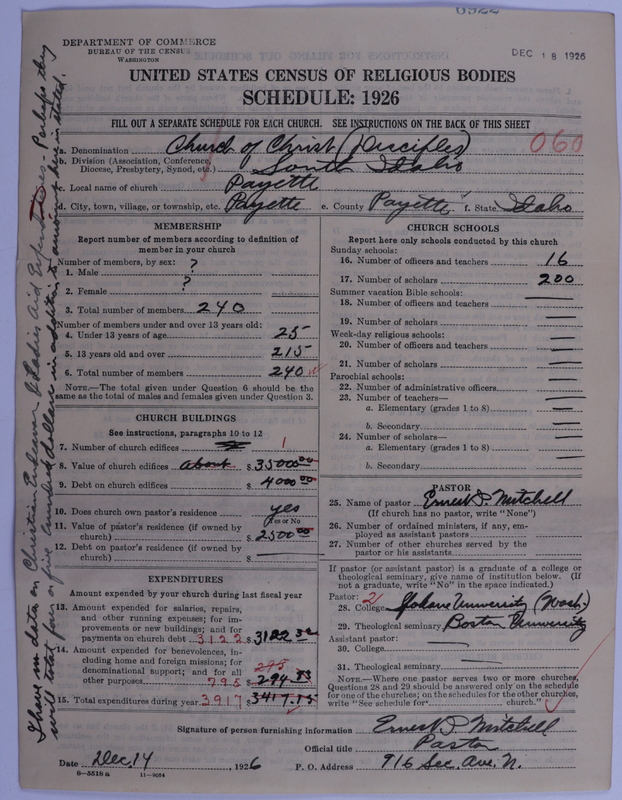 DEC 18 1926
DEPARTMENT OF COMMERCE
BUREAU OF THE CENSUS
WASHINGTON
UNITED STATES CENSUS OF RELIGIOUS BODIES
SCHEDULE: 1926
FILL OUT A SEPARATE SCHEDULE FOR EACH CHURCH. SEE INSTRUCTIONS ON THE BACK OF THIS SHEET
a. Denomination Church of Christ (Disciples) 060
b. Division (Association, Conference, Diocese, Presbytery, Synod, etc.) South Idaho
c. Local name of church Payette
d. City, town, village, or township, etc. Payette e. County Payette f. State Idaho
MEMBERSHIP
Report number of members according to definition of
member in your church
Number of members, by sex:
1. Male ?
2. Female ?
3. Total number of members 240
Number of members under and over 13 years old:
4. Under 13 years of age 25
5. 13 years old and over 215
6. Total number of members 240
NOTE.—The total given under Question 6 should be the
same as the total of males and females given under Question 3.
CHURCH BUILDINGS
See instructions, paragraphs 10 to 12
7. Number of church edifices 1
8. Value of church edifices about $ 35000.00
9. Debt on church edifices $ 4000.00
10. Does church own pastor's residence yes
Yes or No
11. Value of pastor's residence (if owned by
church) $ 2500.00
12. Debt on pastor's residence (if owned by
church) $ —
EXPENDITURES
Amount expended by your church during last fiscal year
13. Amount expended for salaries, repairs,
and other running expenses; for im-
provements or new buildings; and for
payments on church debt 3122 $ 3122
14. Amount expended for benevolences, in-
cluding home and foreign missions; for
denominational support; and for all 295
other purposes 795 $ 294.83
15. Total expenditures during year 3917 $ 3417.15
CHURCH SCHOOLS
Report here only schools conducted by this church
Sunday schools:
16. Number of officers and teachers 16
17. Number of scholars 200
Summer vacation Bible schools:
18. Number of officers and teachers —
19. Number of scholars —
Week-day religious schools:
20. Number of officers and teachers —
21. Number of scholars —
Parochial schools:
22. Number of administrative officers —
23. Number of teachers—
a. Elementary (grades 1 to 8) —
b. Secondary —
24. Number of scholars—
a. Elementary (grades 1 to 8) —
b. Secondary —
PASTOR
25. Name of pastor Ernest I. Mitchell
(If church has no pastor, write "None")
26. Number of ordained ministers, if any, em-
ployed as assistant pastors
27. Number of other churches served by the
pastor or his assistants
If pastor (or assistant pastor) is a graduate of a college or
theological seminary, give name of institution below. (If
not a graduate, write "No" in the space indicated.)
Pastor: 2
28. College Spokane University (Wash.)
29. Theological seminary Boston University
Assistant pastor:
30. College —
31. Theological seminary —
NOTE.—Where one pastor serves two or more churches,
Questions 28 and 29 should be answered only on the schedule
for one of the churches; on the schedules for the other churches,
write "See schedule for church."
Signature of person furnishing information Ernest I. Mitchell
Official title Pastor
Date Dec. 14, 1926 P. O. Address 916 Sec. Ave. N.
6—5518 a 11—9054
I have no data on Christian Endeavor & Ladies Aid Expenditures. Perhaps they
will total four or five hundred dollars in addition to amounts here in stated.